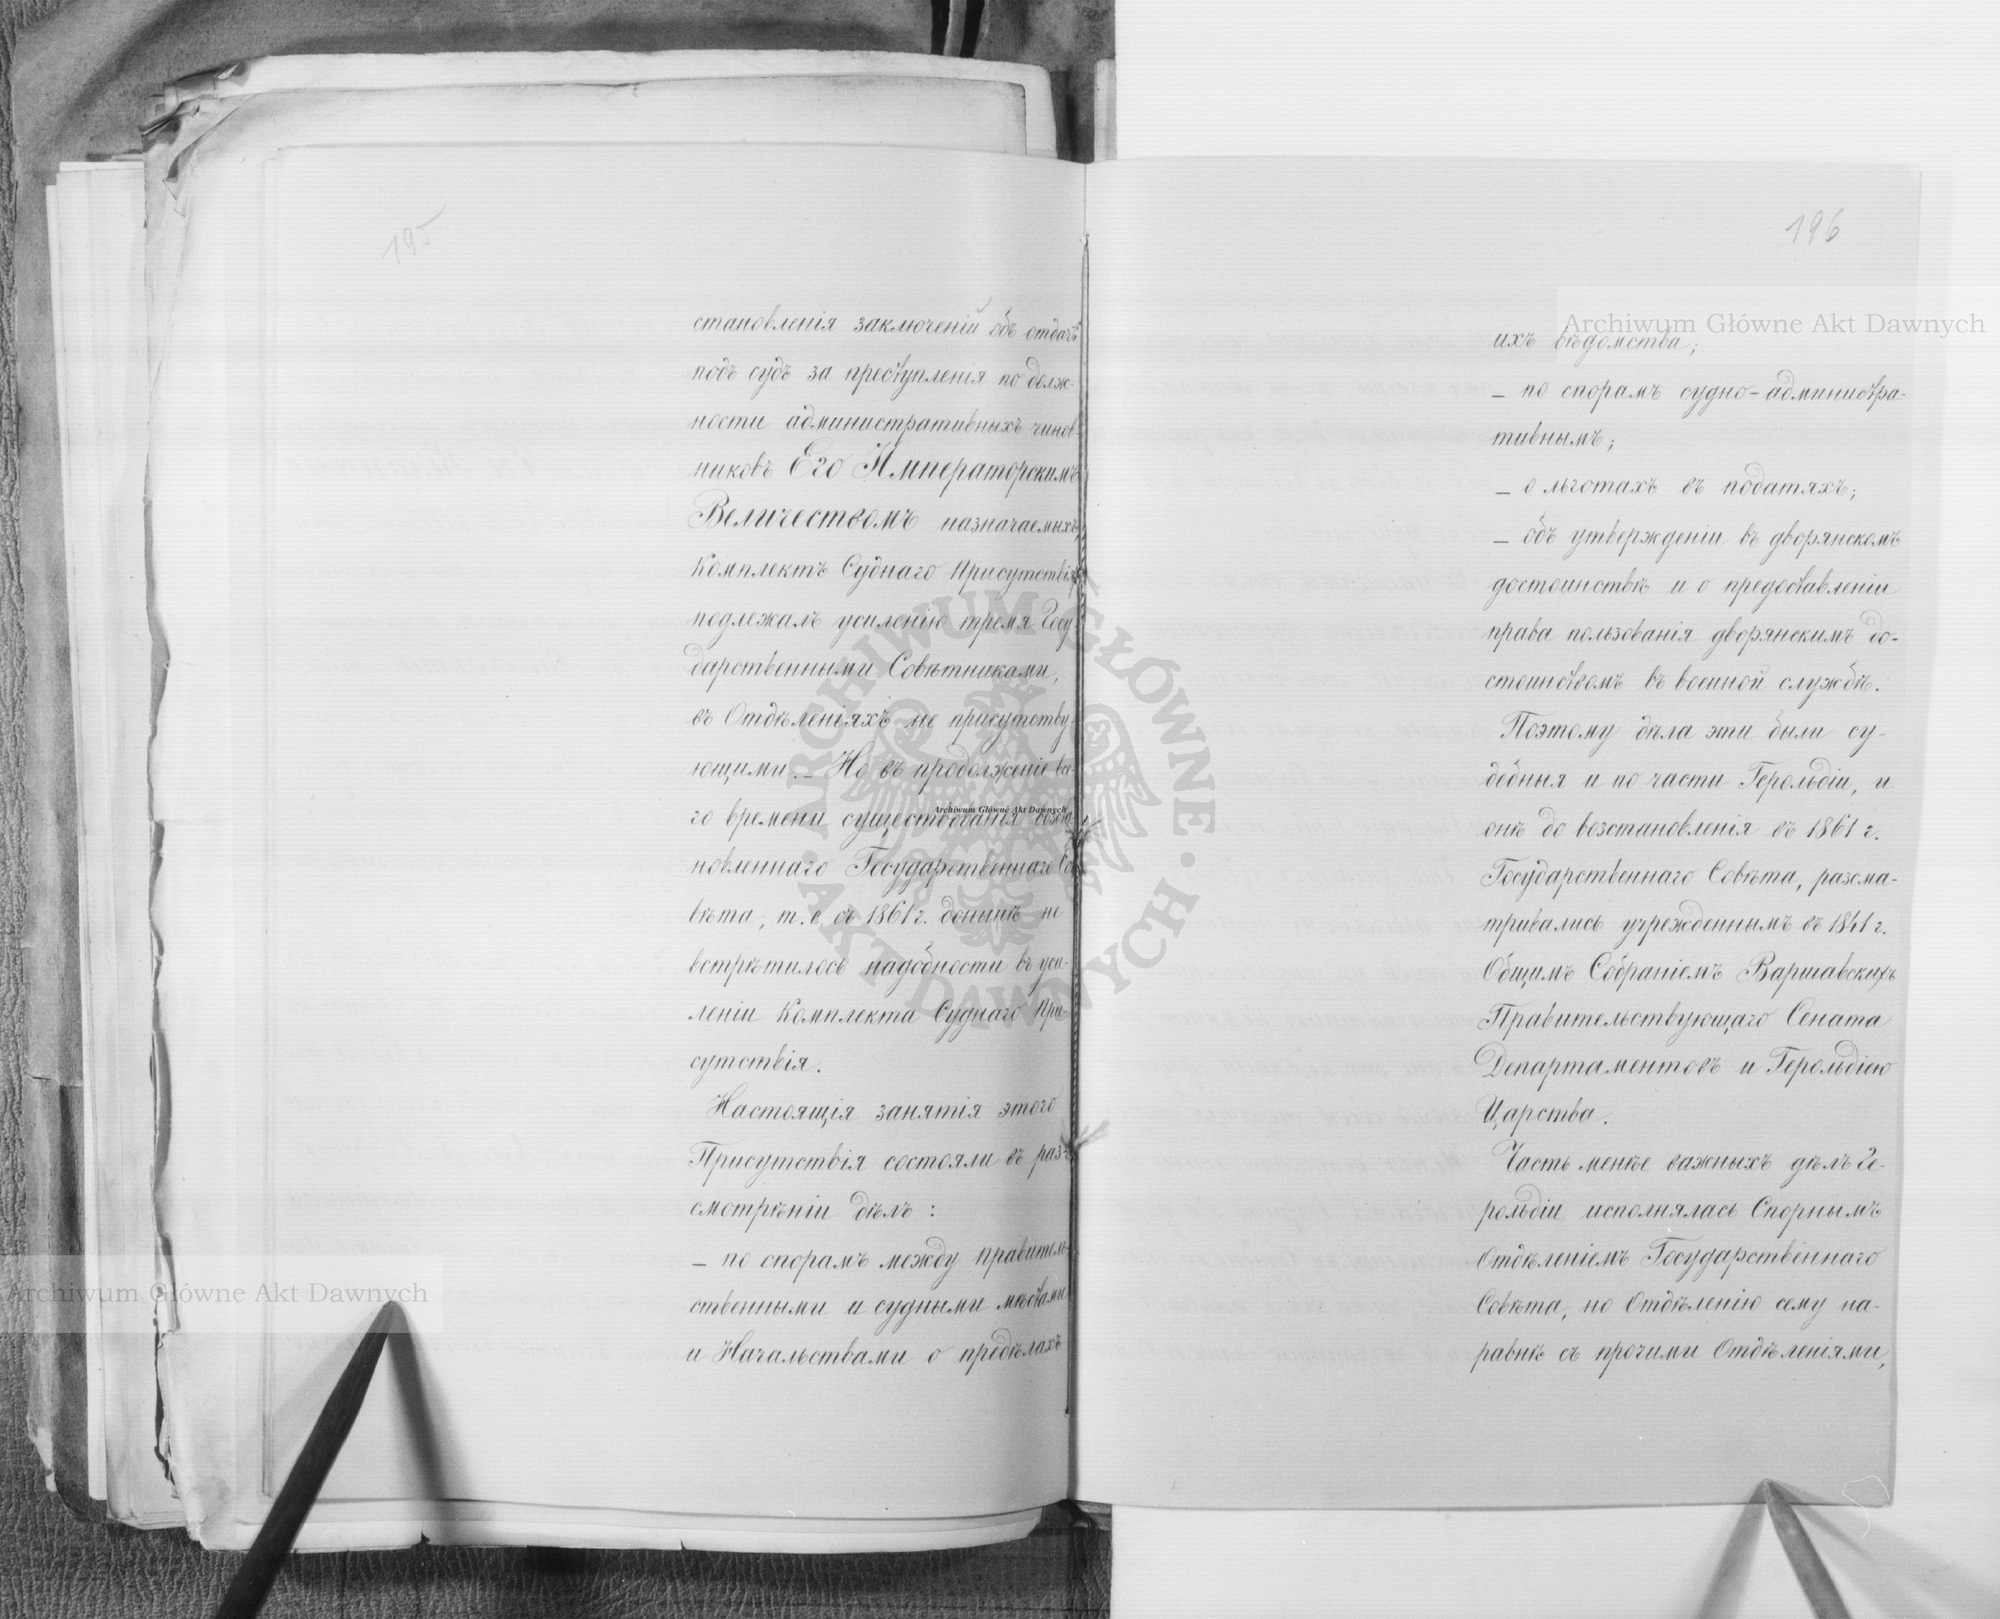 195
становленія заключеній объ отдачѣ
подъ судъ за преступленія по долж-
ности административныхъ чинов-
никовъ Его Императорскимъ
Величествомъ назначаемыхъ,
Комплектъ Суднаго Присутствія
подлежалъ усиленію тремя Госу-
дарственными Совѣтниками,
въ Отдѣленіяхъ не присутству-
ющими. – Но въ продолженіе все-
го времени существованія возста-
новленнаго Государственнаго Со-
вѣта, т. е. съ 1861 г. донынѣ не
встрѣтилось надобности въ уси-
леніи Комплекта Суднаго При-
сутствія.
Настоящія занятія этого
Присутствія состояли въ раз-
смотрѣніи дѣлъ:
– по спорамъ между правитель-
ственными и судными мѣстами
и Начальствами о предѣлахъ
196
ихъ вѣдомства;
– по спорамъ судно-администра-
тивнымъ;
– о льготахъ въ податяхъ;
– объ утвержденіи въ дворянскомъ
достоинствѣ и о предоставленіи
права пользованія дворянскимъ до-
стоинствомъ въ военной службѣ.
Поэтому дѣла эти были су-
дебныя и по части Герольдіи, и
онѣ до возстановленія въ 1861 г.
Государственнаго Совѣта, разсма-
тривались учрежденнымъ въ 1841 г.
Общимъ Собраніемъ Варшавскихъ
Правительствующаго Сената
Департаментовъ и Герольдіею
Царства.
Часть менѣе важныхъ дѣлъ Ге-
рольдіи исполнялась Спорнымъ
Отдѣленіемъ Государственнаго
Совѣта, но Отдѣленію сему на-
равнѣ съ прочими Отдѣленіями,
Archiwum Główne Akt Dawnych
Archiwum Główne Akt Dawnych
Archiwum Główne Akt Dawnych
ARCHIWUM GŁÓWNE · AKT DAWNYCH ·